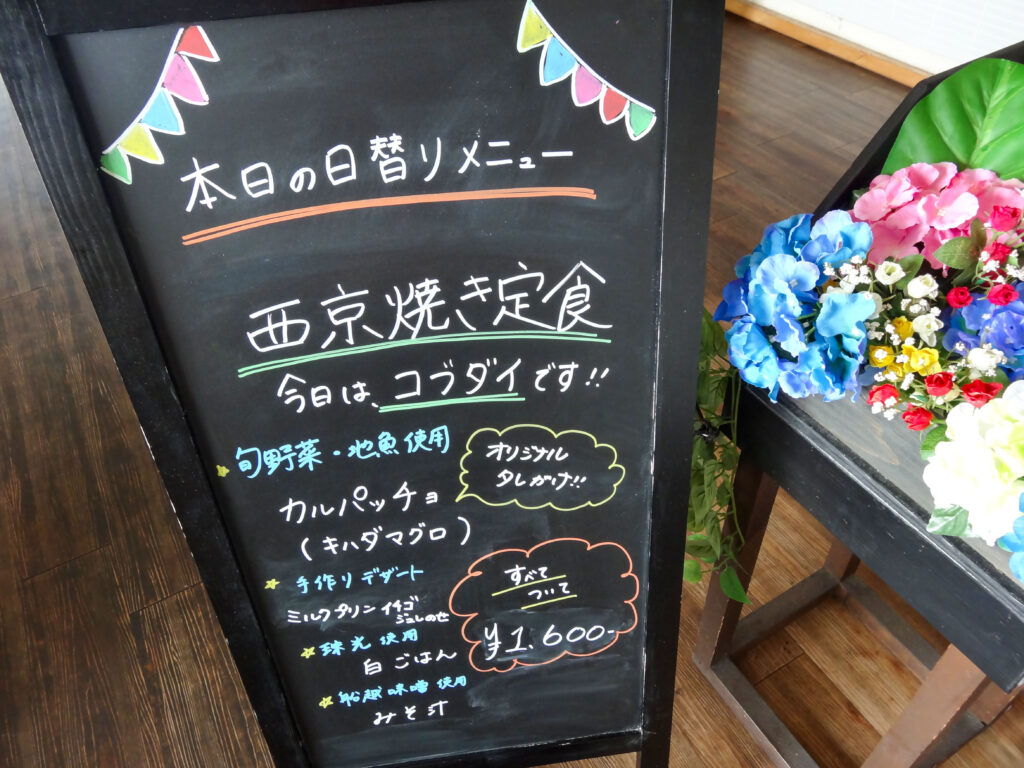 本日の日替りメニュー
西京焼き定食
今日は、コブダイです!!
旬野菜・地魚使用
オリジナル
タレがけ!!
カルパッチョ
(キハダマグロ)
手作りデザート
ミルクプリン イチゴ
ジュレのせ
珠光使用
白ごはん
船越味噌使用
みそ汁
すべて
ついて
¥1,600-